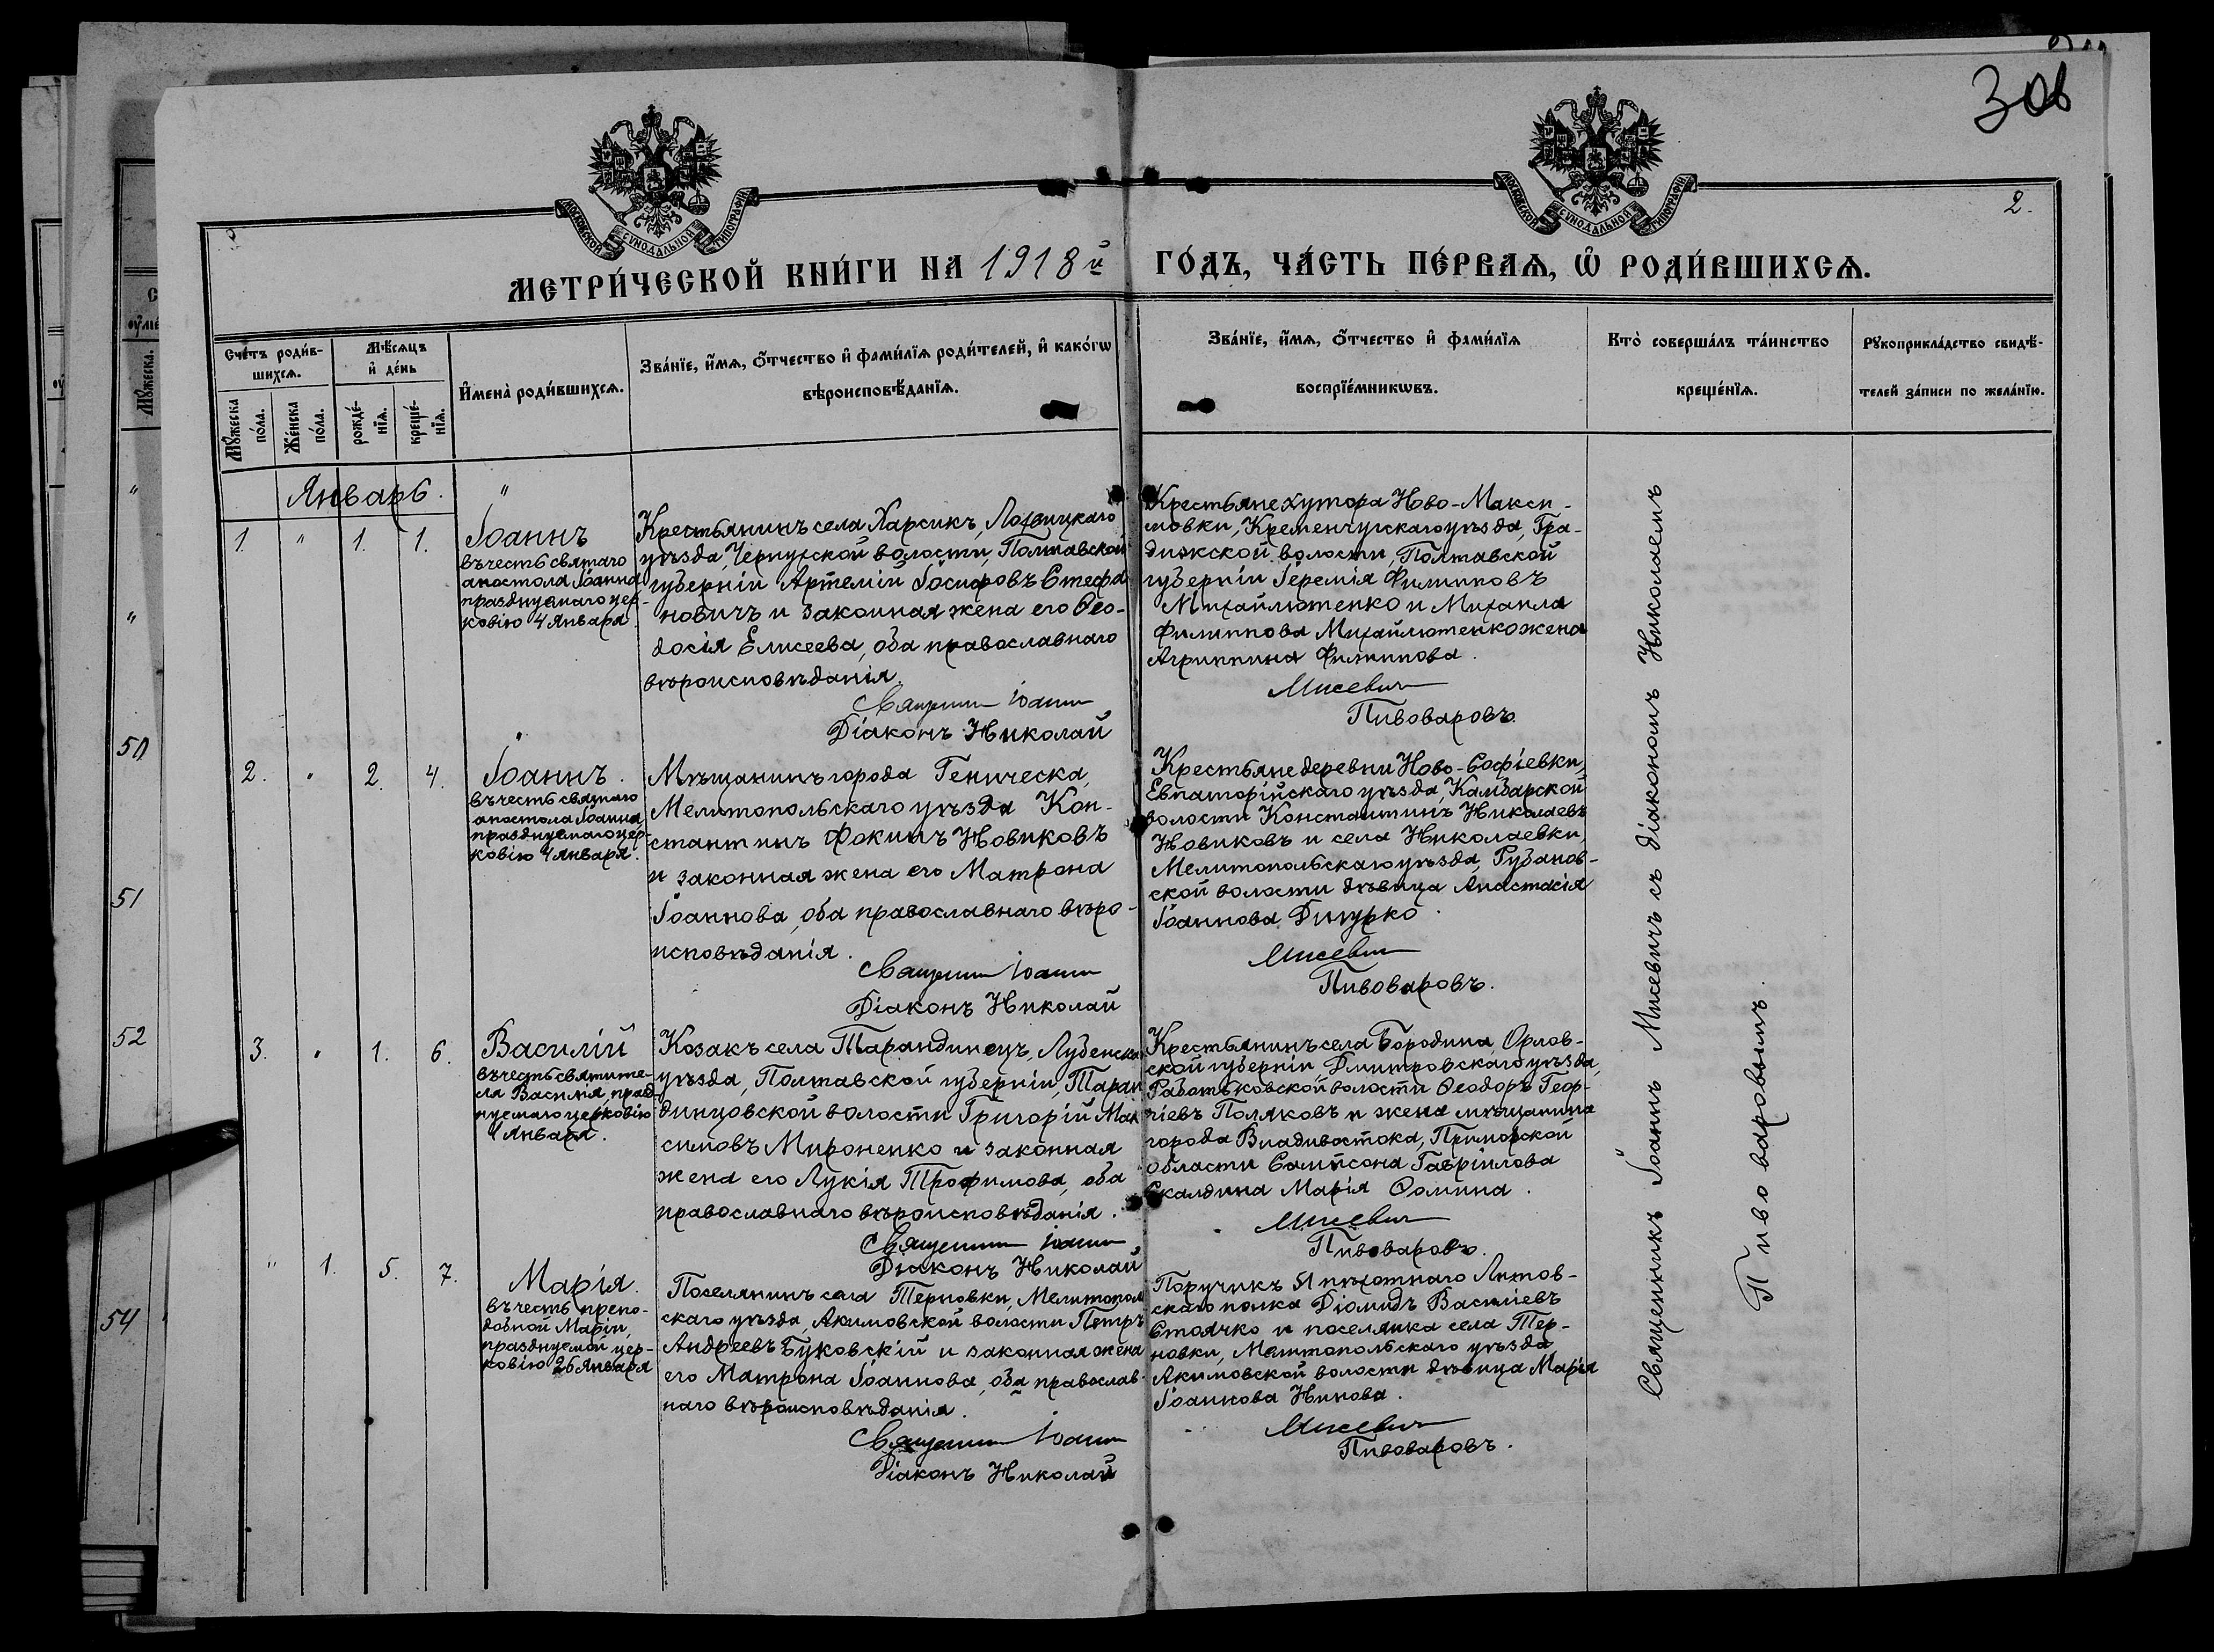 306
2.
МОСКОВСКОЙ СѴНОДАЛЬНОЙ ТИПОГРАФІИ
МОСКОВСКОЙ СѴНОДАЛЬНОЙ ТИПОГРАФІИ
МЕТРИ́ЧЕСКОЙ КНИ́ГИ НА 1918й ГО́ДЪ, ЧА́СТЬ ПЕ́РВАѦ, Ѡ҆ РОДИ́ВШИХСѦ.
Сче́тъ роди́в-
шихсѧ.
Мꙋ́жеска
по́ла.
Же́нска
по́ла.
Мѣ́сѧцъ
и҆ де́нь
рожде́-
нїѧ.
креще́-
нїѧ.
И҆мена̀ роди́вшихсѧ.
Зва́нїе, и҆́мѧ, ѻ҆́тчество и҆ фами́лїѧ роди́телей, и҆ како́гѡ
вѣроисповѣ́данїѧ.
Зва́нїе, и҆́мѧ, ѻ҆́тчество и҆ фами́лїѧ
воспрїе́мникѡвъ.
Кто̀ соверша́лъ та́инство
креще́нїѧ.
Рꙋкоприкла́дство свидѣ́-
телей за́писи по жела́нїю.
Январь.
1. " 1. 1.
Іоаннъ
въ честь святаго
апостола Іоанна
празднуемаго цер-
ковію 4 Января.
Крестьянинъ села Харсикъ, Лохвицкаго
уѣзда, Чернухской волости, Полтавской
губерніи Артемій Іосифовъ Стефа-
новичъ и законная жена его Ѳео-
досія Елисеева, оба православнаго
вѣроисповѣданія.
Священникъ Іоаннъ
Діаконъ Николай
Крестьяне хутора Ново-Макси-
мовки, Кременчугскаго уѣзда, Гра-
дижской волости, Полтавской
губерніи Іеремія Филипповъ
Михайлютенко и Михаила
Филиппова Михайлютенко жена
Агриппина Филиппова.
Мисевичъ
Пивоваровъ.
2. " 2. 4.
Іоаннъ.
въ честь святаго
апостола Іоанна,
празднуемаго цер-
ковію 4 Января.
Мѣщанинъ города Геническа,
Мелитопольскаго уѣзда Кон-
стантинъ Фокинъ Новиковъ
и законная жена его Матрона
Іоаннова, оба православнаго вѣро-
исповѣданія.
Священникъ Іоаннъ
Діаконъ Николай
Крестьяне деревни Ново-Софіевки,
Евпаторійскаго уѣзда, Камбарской
волости Константинъ Николаевъ
Новиковъ и села Николаевки,
Мелитопольскаго уѣзда, Рубанов-
ской волости дѣвица Анастасія
Іоаннова Дигурко.
Мисевичъ
Пивоваровъ.
3. " 1. 6.
Василій
въ честь святите-
ля Василія, празд-
нуемаго церковію
1 Января.
Козакъ села Тарандинецъ, Лубенска
уѣзда, Полтавской губерніи, Таран
динцовской волости Григорій Мак
симовъ Мироненко и законная
жена его Лукія Трофимова, оба
православнаго вѣроисповѣданія.
Священникъ Іоаннъ
Діаконъ Николай
Крестьянинъ села Бородина, Орлов-
ской губерніи Дмитровскаго уѣзда,
Работьковской волости Ѳеодоръ Геор-
гіевъ Поляковъ и жена мѣщанина
города Владивостока, Приморской
области Сампсона Гавріилова
Скалдина Марія Ѳомина.
Мисевичъ
Пивоваровъ.
" 1. 5. 7.
Марія.
въ честь препо-
добной Маріи,
празднуемой цер-
ковію 26 Января
Поселянинъ села Терновки, Мелитополь
скаго уѣзда, Акимовской волости Петръ
Андреевъ Буковскій и законная жена
его Матрона Іоаннова, оба православ-
наго вѣроисповѣданія.
Священникъ Іоаннъ
Діаконъ Николай
Поручикъ 51 пѣхотнаго Литов-
скаго полка Діомидъ Василіевъ
Стоячко и поселянка села Тер-
новки, Мелитопольскаго уѣзда,
Акимовской волости дѣвица Марія
Іоаннова Нинова.
Мисевичъ
Пивоваровъ.
Священникъ Іоаннъ Мисевичъ съ діакономъ Николаемъ
Пивоваровымъ.
50
51
52
54